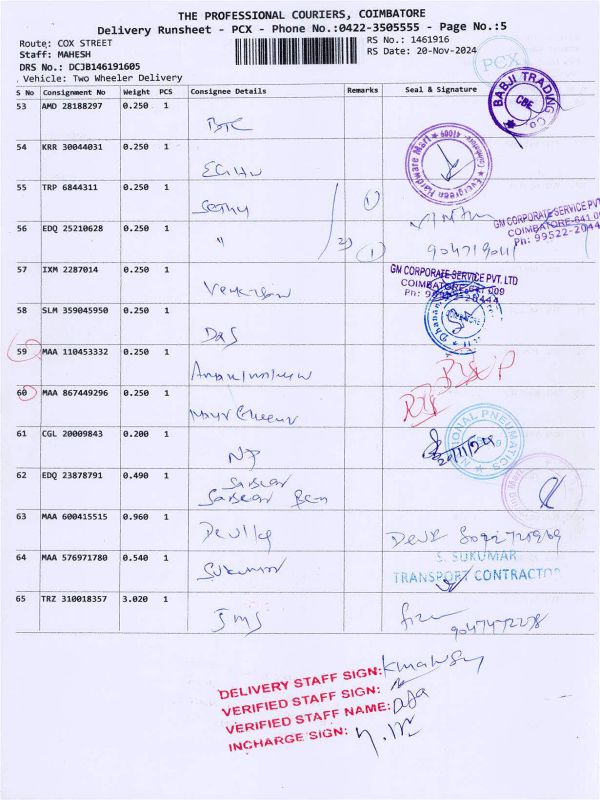 THE PROFESSIONAL COURIERS, COIMBATORE
Delivery Runsheet - PCX - Phone No.:0422-3505555 - Page No.:5
Route: COX STREET
RS No.: 1461916
Staff: MAHESH
RS Date: 20-Nov-2024
DRS No.: DCJB146191605
Vehicle: Two Wheeler Delivery
PCX
S No Consignment No Weight PCS Consignee Details Remarks Seal & Signature
53 AMD 28188297 0.250 1
BABJI TRADING Co. CBE
54 KRR 30044031 0.250 1
Evergreen Hardware Mart
55 TRP 6844311 0.250 1 Sethu
56 EDQ 25210628 0.250 1 "
GM CORPORATE SERVICE PVT
COIMBATORE-641 009
Ph: 99522-20444
57 IXM 2287014 0.250 1
GM CORPORATE SERVICE PVT. LTD
COIMBATORE-641 009
Ph: 99522-20444
58 SLM 359045950 0.250 1 Das
59 MAA 110453332 0.250 1
60 MAA 867449296 0.250 1
61 CGL 20009843 0.200 1 NP
NATIONAL PNEUMATICS
20/11/24
62 EDQ 23878791 0.490 1
63 MAA 600415515 0.960 1
64 MAA 576971780 0.540 1 Sukumar
S. SUKUMAR
TRANSPORT CONTRACTOR
65 TRZ 310018357 3.020 1 SMS
DELIVERY STAFF SIGN:
VERIFIED STAFF SIGN:
VERIFIED STAFF NAME:
INCHARGE SIGN: